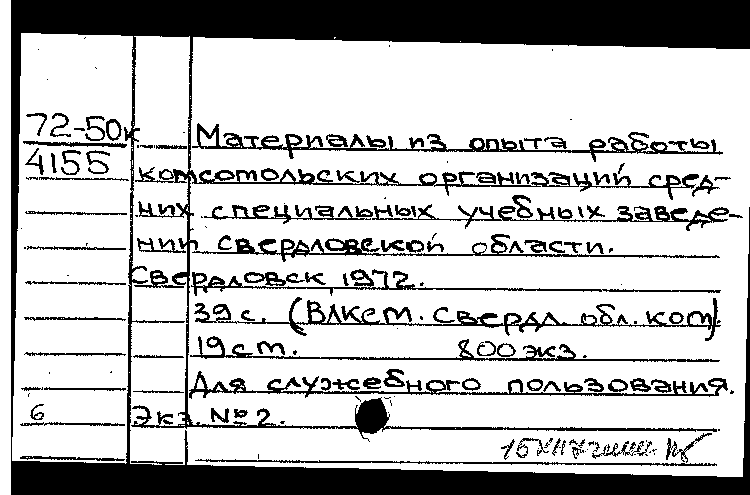 72-50к Материалы из опыта работы
4155 комсомольских организаций сред-
них специальных учебных заведе-
нии Свердловской области.
Свердловск, 1972.
39 с. (ВЛКСМ. Свердл. обл. ком)
19 ст. 800 экз.
Для служебного пользования.
6 Экз. № 2.